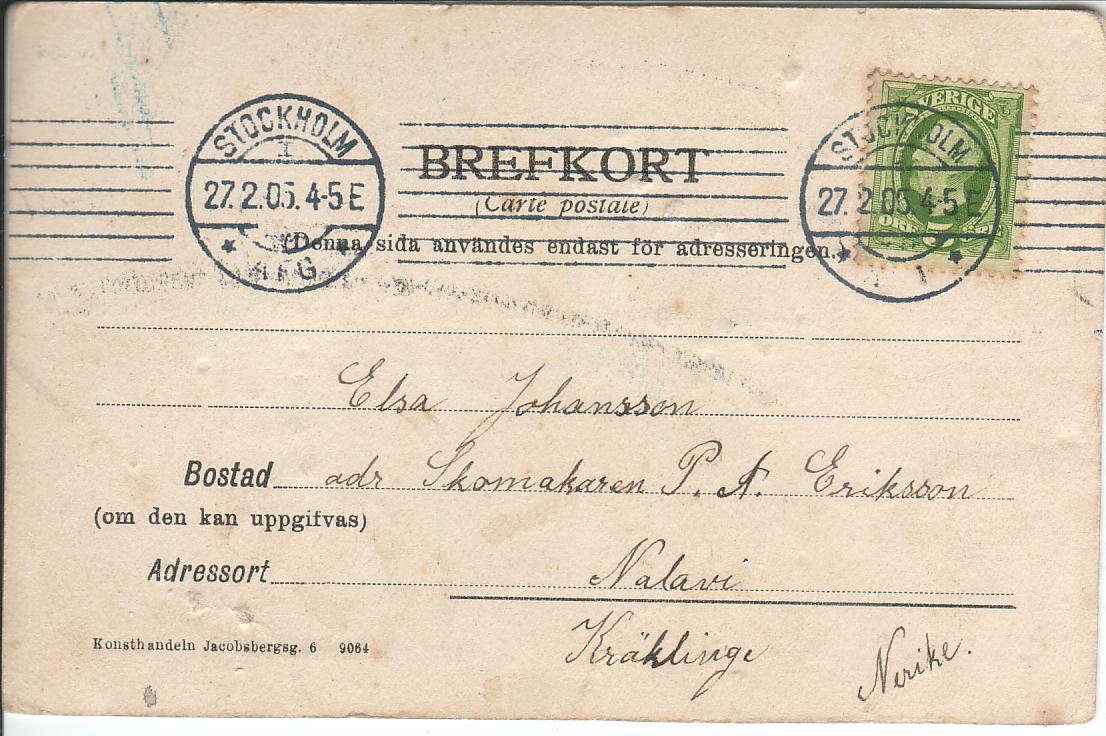 STOCKHOLM
1
27.2.05.4-5E
BREFKORT
(Carte postale)
(Denna sida användes endast för adresseringen.)
SVERIGE
STOCKHOLM
27.2.05.4-5E
Elsa Johansson
Bostad adr Skomakaren P. A. Eriksson
(om den kan uppgifvas)
Adressort Nalavi
Kräklinge
Nerike.
Konsthandeln Jacobsbergsg. 6 9064